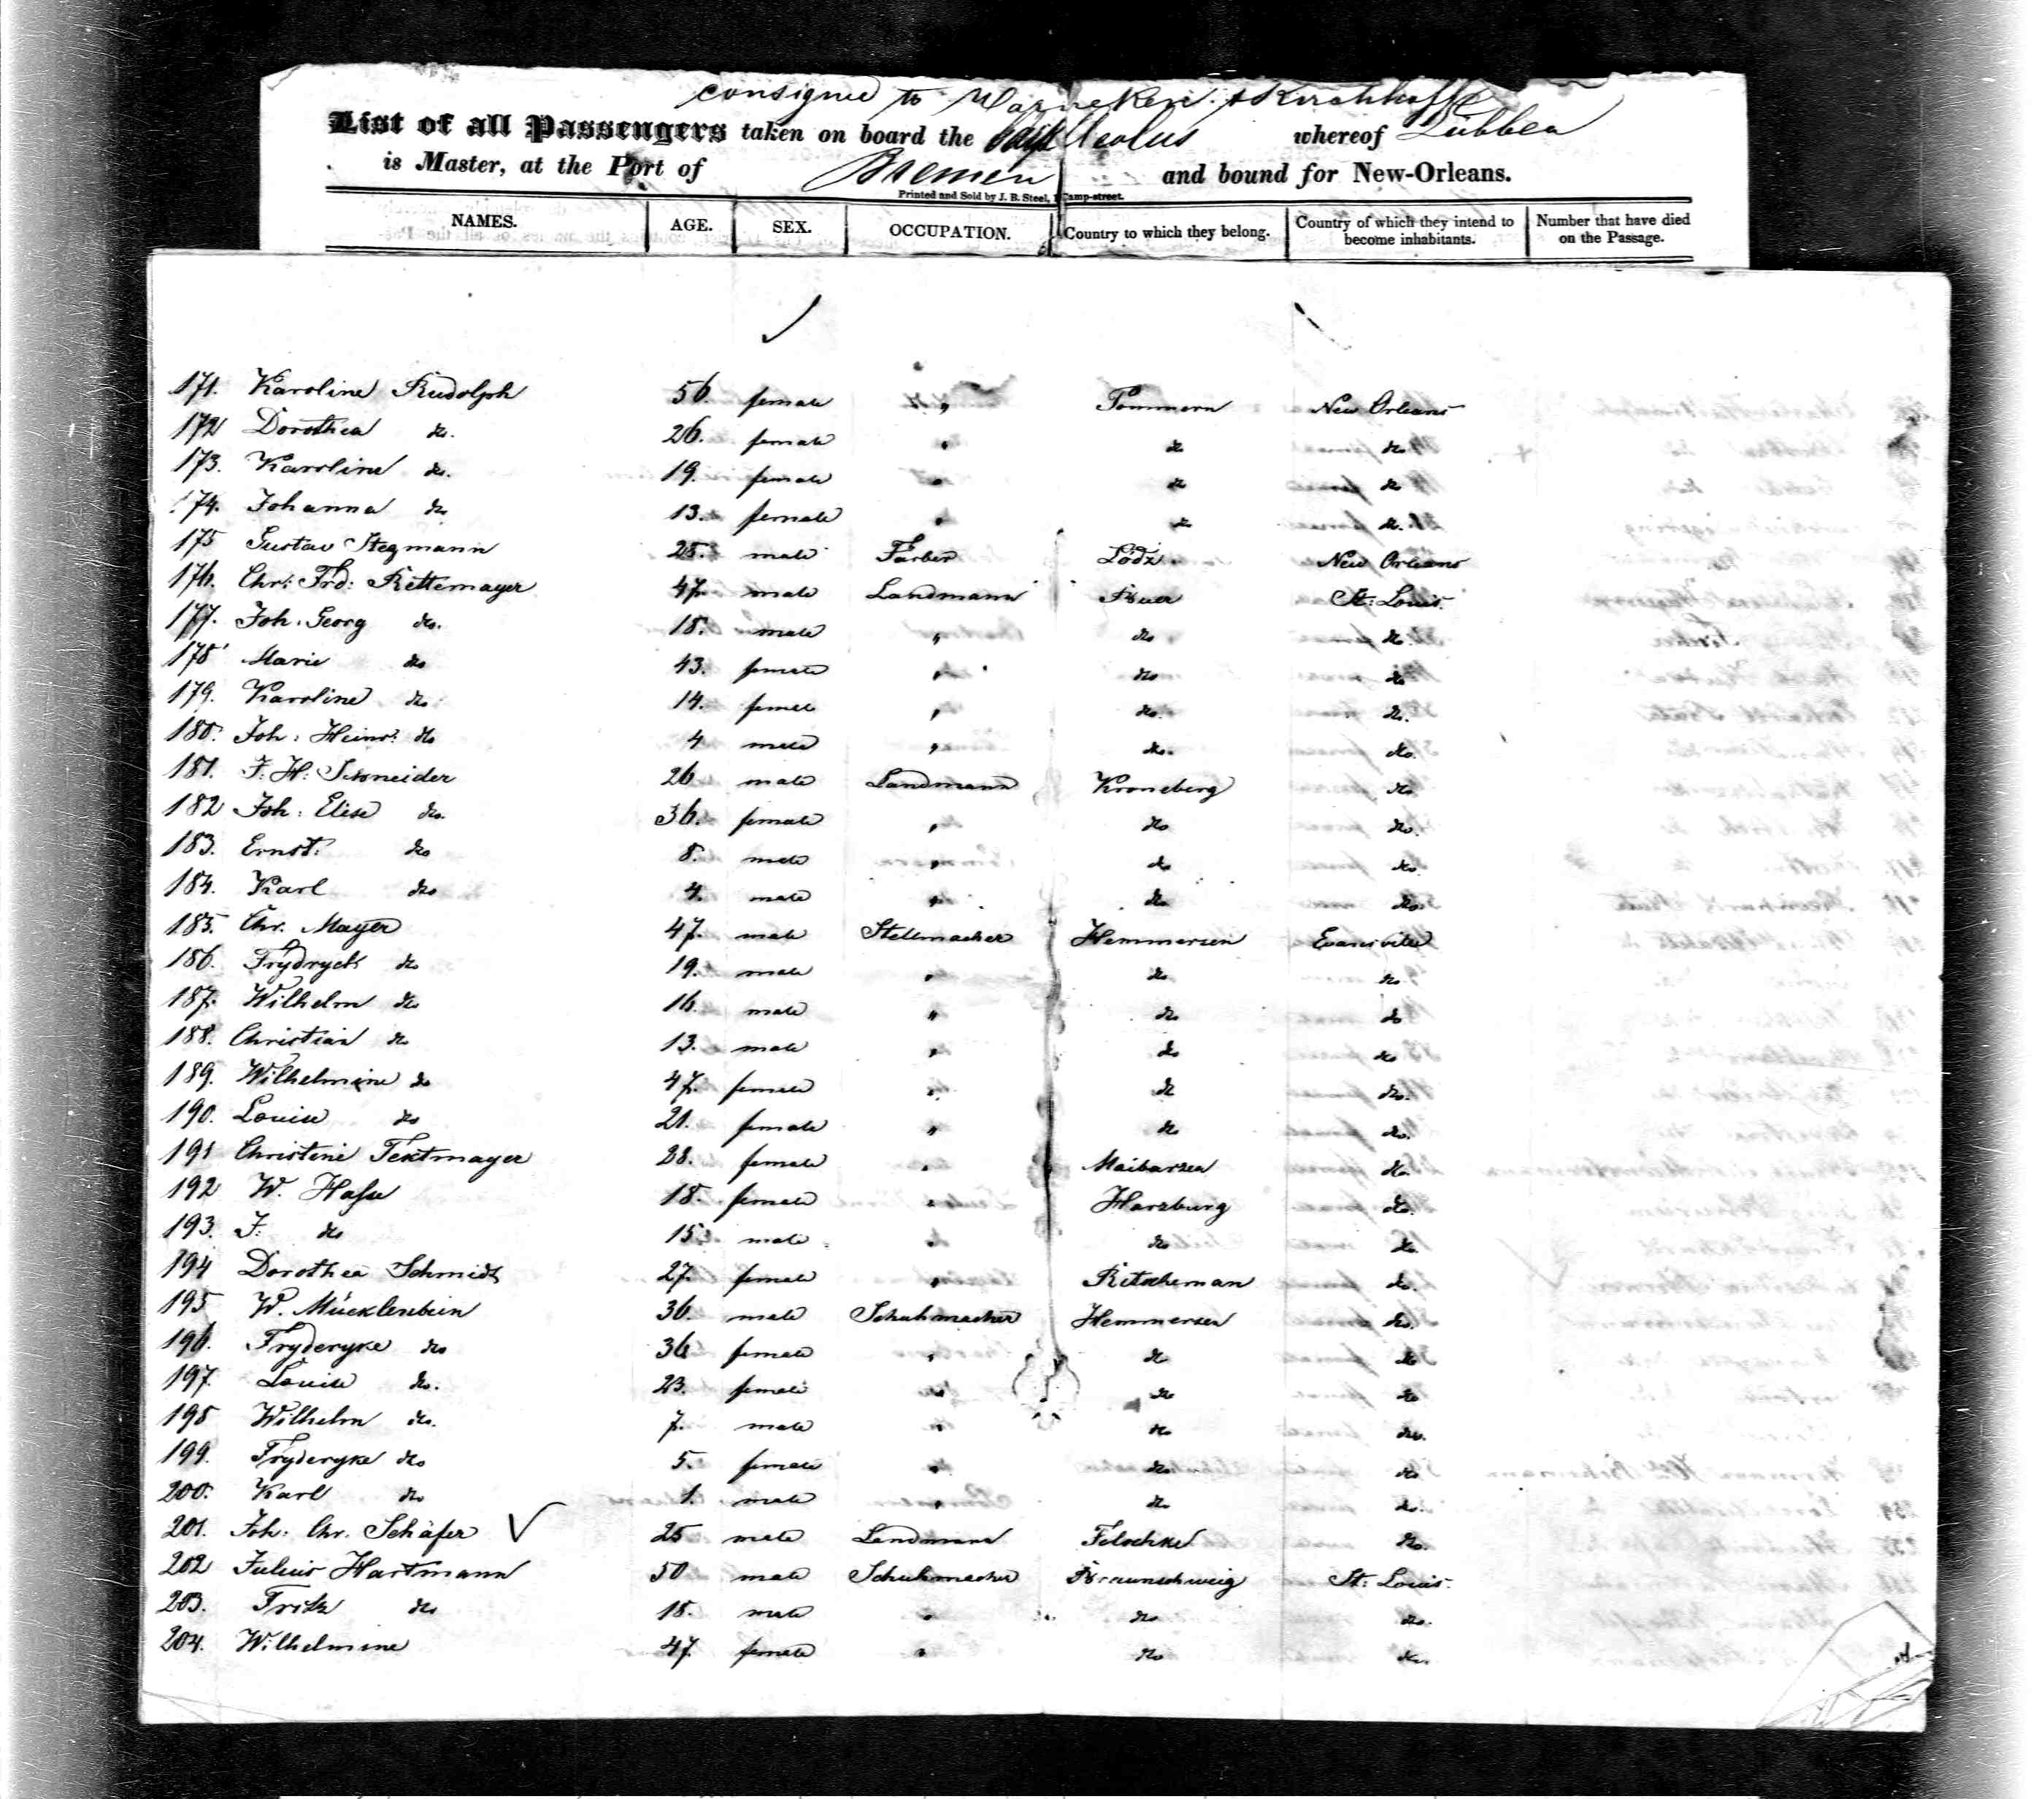 consigned to Warneken & Kirchhoff
List of all Passengers taken on board the Ship Aeolus whereof Lübben
is Master, at the Port of Bremen and bound for New-Orleans.
Printed and Sold by J. B. Steel, Camp-street.
NAMES. AGE. SEX. OCCUPATION. Country to which they belong. Country of which they intend to become inhabitants. Number that have died on the Passage.
171. Karoline Rudolph 56. female " Pommern New Orleans
172 Dorothea do. 26. female " do do
173. Karoline do. 19. female " do do
174. Johanna do 13. female " do do.
175 Gustav Stegmann 25. male Färber Lodz New Orleans
176. Chr: Frd: Rettemayer 47. male Landmann Buer St. Louis.
177. Joh. Georg do. 18. male " do do.
178 Marie do 43. female " do do
179. Karoline do. 14. femel " do. do.
180. Joh: Heinr: do 4 male " do. do.
181. F: H: Schneider 26 male Landmann Kroneberg do.
182 Joh: Elise do. 36. female " do do.
183. Ernst. do 8. male " do do.
184. Karl do 4. male " do do.
185. Chr. Mayer 47. male Stellmacher Hemmersen Evansville
186. Frydrych do 19. male " do do
187. Wilhelm do 16. male " do do
188. Christian do 13. male " do do
189. Wilhelmine do 47. female " do do.
190. Louise do 21. female " do do.
191 Christine Tektmayer 28. female " Maibarsen do.
192 W. Hasse 18. female " Harzburg do.
193. F. do 15 male " do do.
194 Dorothea Schmidt 27. female " Ritscheman do.
195 W. Mücklenbein 36. male Schuhmacher Hemmersen do.
196. Fryderyke do 36 female " do do
197. Louise do. 23. female " do do
198 Wilhelm do. 7. male " do do.
199. Fryderyke do 5. female " do do
200. Karl do 1. male " do do.
201. Joh: Chr. Schäfer 25 male Landmann Feloschke do.
202 Julius Hartmann 50 male Schuhmacher Braunschweig St: Louis.
203. Fritz do 18. male " do do.
204. Wilhelmine 47 female " do do.